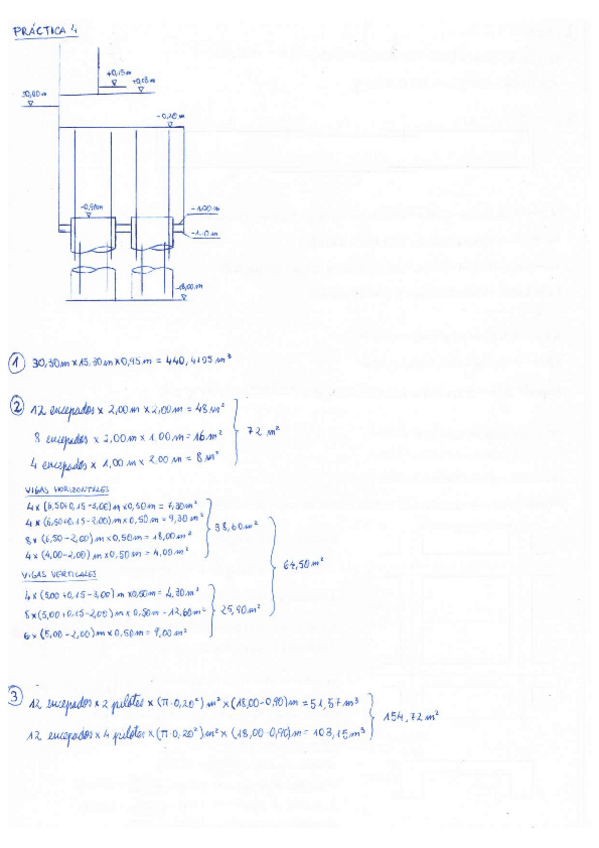 PRÁCTICA 4
+0,15m
+0,15m
±0,00m
-0,20m
-0,90m
-1,00m
-1,10m
-18,00m
1 30,30m x 15,30m x 0,95m = 440,4105 m³
2 12 encepados x 2,00m x 2,00m = 48m²
8 encepados x 2,00m x 1,00m = 16m² 72 m²
4 encepados x 1,00m x 2,00m = 8m²
VIGAS HORIZONTALES
4 x (6,50+0,15-3,00)m x 0,50m = 7,30m²
4 x (6,50+0,15-2,00)m x 0,50m = 9,30m² 38,60m²
8 x (6,50-2,00)m x 0,50m = 18,00m²
4 x (4,00-2,00)m x 0,50m = 4,00m²
64,50m²
VIGAS VERTICALES
4 x (5,00+0,15-3,00)m x 0,50m = 4,30m²
8 x (5,00+0,15-2,00)m x 0,50m = 12,60m² 25,90m²
6 x (5,00-2,00)m x 0,50m = 9,00m²
3 12 encepados x 2 pilotes x (π·0,20²)m² x (18,00-0,90)m = 51,57m³
154,72m³
12 encepados x 4 pilotes x (π·0,20²)m² x (18,00-0,90)m = 103,15m³